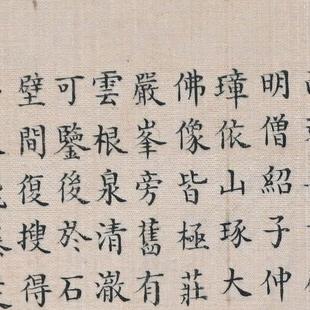 明僧紹子仲
璋依山琢大
佛像皆極莊
嚴峯旁舊有
雲根泉清澈
可鑒後於石
壁間復搜得